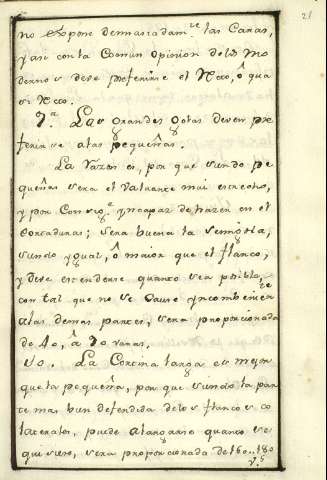 21
no expone demasiadam.te las Caras,
y asi con la Comun opinion de los mo
dernos se deve preferirse el Recto, ô qua
si Recto.
7.a Las Grandes Golas deven pre
ferirse a las pequeñas.
La razon es, por que siendo pe
queñas sera el Valuarte mui estrecho,
y por Consig.te yncapaz de hazer en el
Cortaduras; sera buena la semigola,
siendo ygual, ô maior que el flanco,
y deve estenderse quanto sea posible,
con tal que no se Cause yncombenien.te
a las demas partes, sera proporcionada
de 40, â 70 varas.
La Cortina larga es mejor
que la pequeña, por que siendo la par
te mas bien defendida de los flancos co
laterales, puede alargarse quanto se
quisiere, sera proporcionada de 160..180
v.s